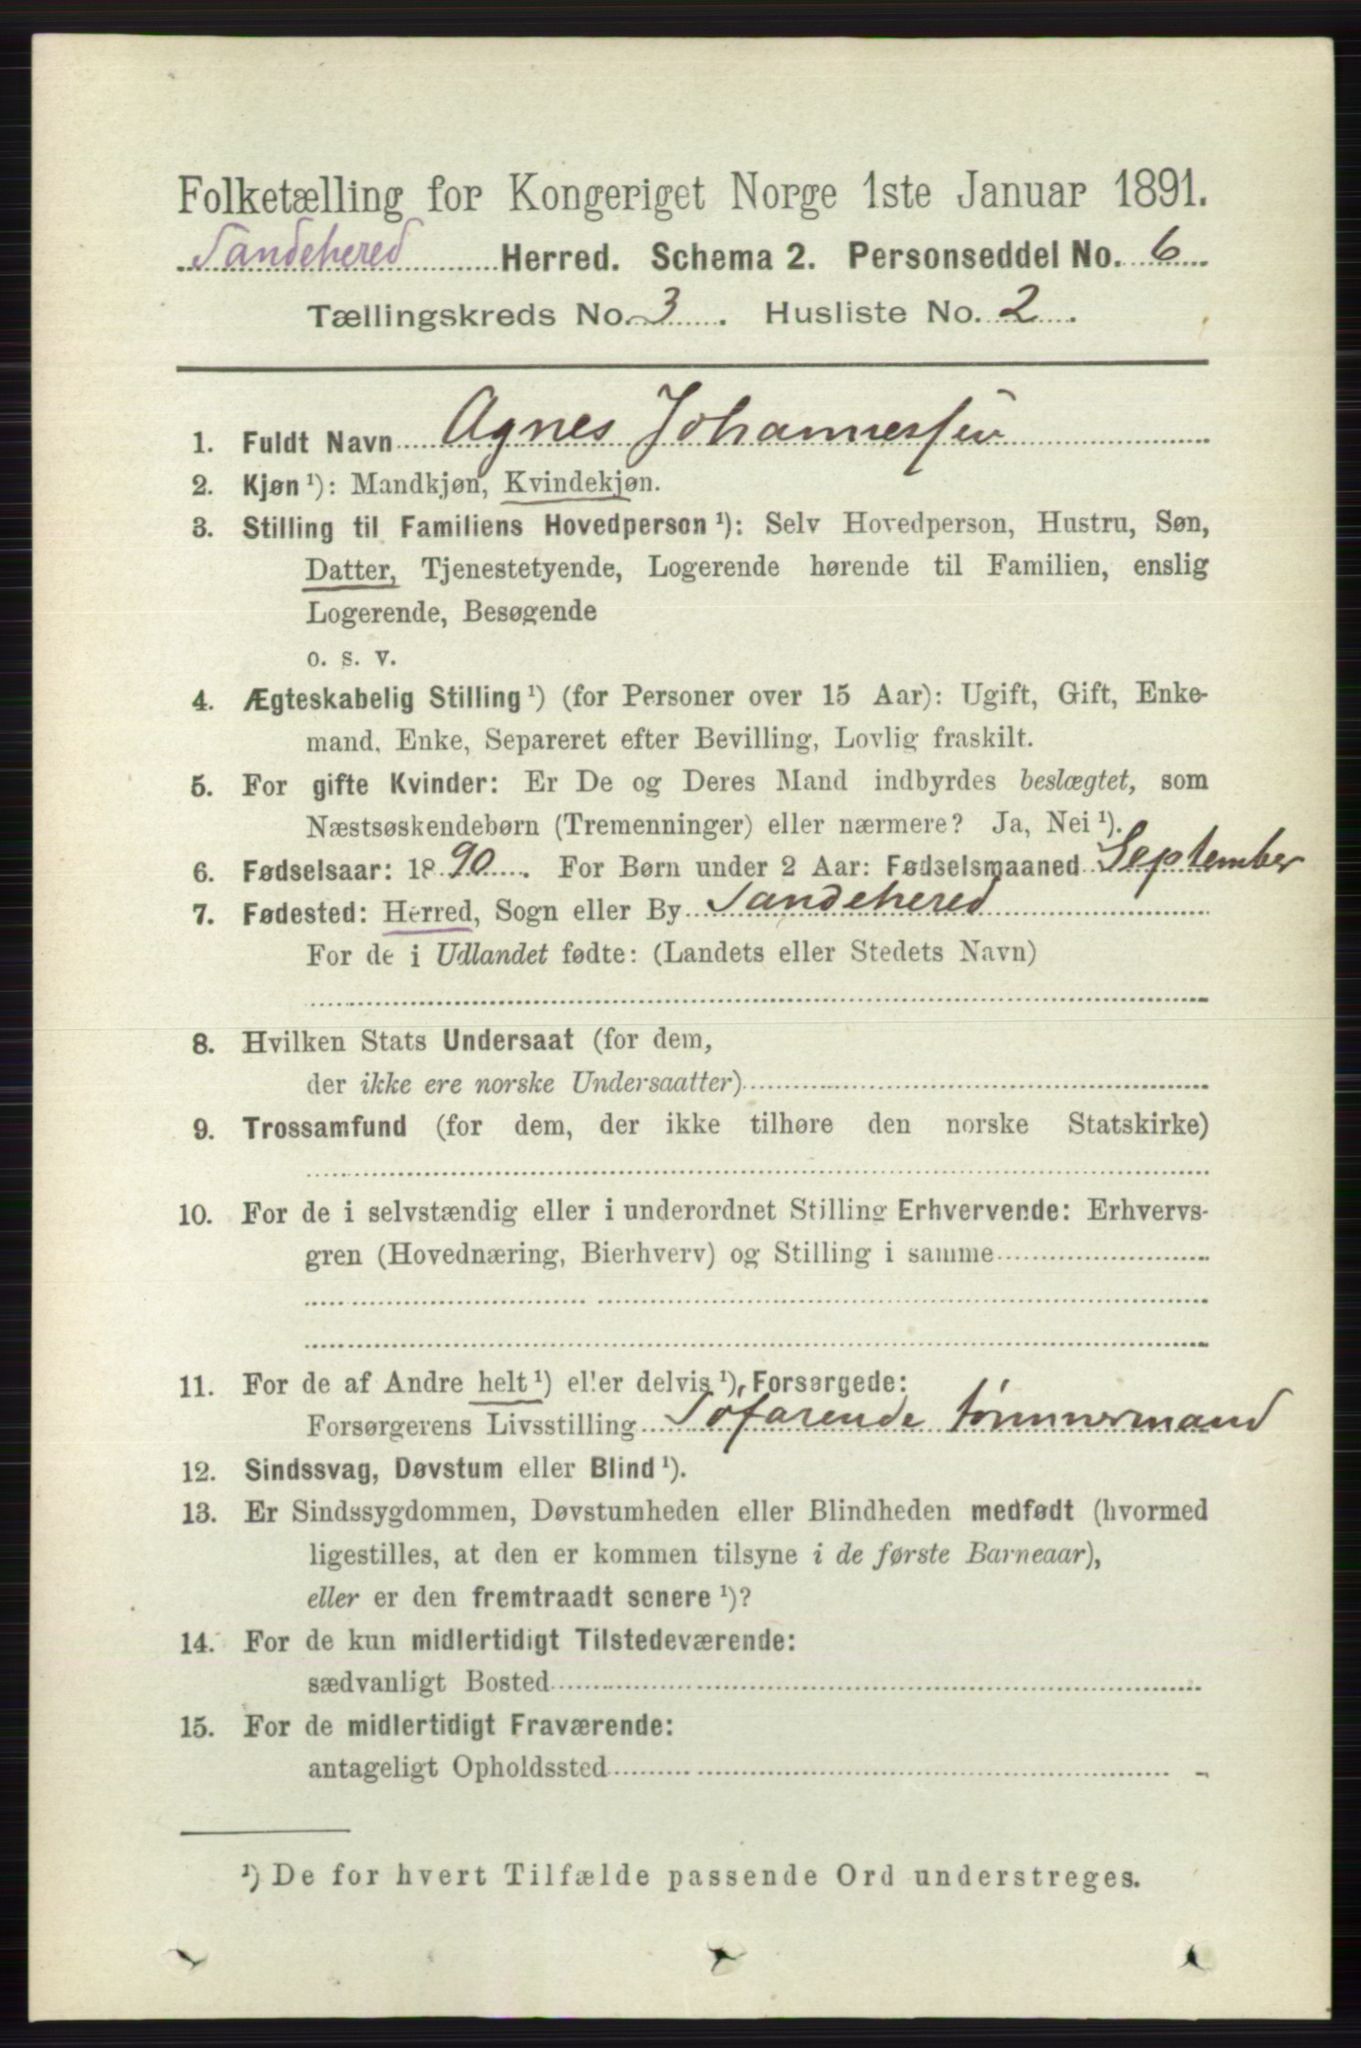 Folketælling for Kongeriget Norge 1ste Januar 1891.
Sandehered Herred. Schema 2. Personseddel No. 6
Tællingskreds No. 3. Husliste No. 2.
1. Fuldt Navn Agnes Johannessen
2. Kjøn ¹): Mandkjøn, Kvindekjøn.
3. Stilling til Familiens Hovedperson ¹): Selv Hovedperson, Hustru, Søn,
Datter, Tjenestetyende, Logerende hørende til Familien, enslig
Logerende, Besøgende
o. s. v.
4. Ægteskabelig Stilling ¹) (for Personer over 15 Aar): Ugift, Gift, Enke-
mand, Enke, Separeret efter Bevilling, Lovlig fraskilt.
5. For gifte Kvinder: Er De og Deres Mand indbyrdes beslægtet, som
Næstsøskendebørn (Tremenninger) eller nærmere? Ja, Nei ¹).
6. Fødselsaar: 1890. For Børn under 2 Aar: Fødselsmaaned September
7. Fødested: Herred, Sogn eller By Sandehered
For de i Udlandet fødte: (Landets eller Stedets Navn)
8. Hvilken Stats Undersaat (for dem,
der ikke ere norske Undersaatter)
9. Trossamfund (for dem, der ikke tilhøre den norske Statskirke)
10. For de i selvstændig eller i underordnet Stilling Erhvervende: Erhvervs-
gren (Hovednæring, Bierhverv) og Stilling i samme
11. For de af Andre helt ¹) eller delvis ¹), Forsørgede:
Forsørgerens Livsstilling Søfarende tømmermand
12. Sindssvag, Døvstum eller Blind ¹).
13. Er Sindssygdommen, Døvstumheden eller Blindheden medfødt (hvormed
ligestilles, at den er kommen tilsyne i de første Barneaar),
eller er den fremtraadt senere ¹)?
14. For de kun midlertidigt Tilstedeværende:
sædvanligt Bosted
15. For de midlertidigt Fraværende:
antageligt Opholdssted
¹) De for hvert Tilfælde passende Ord understreges.